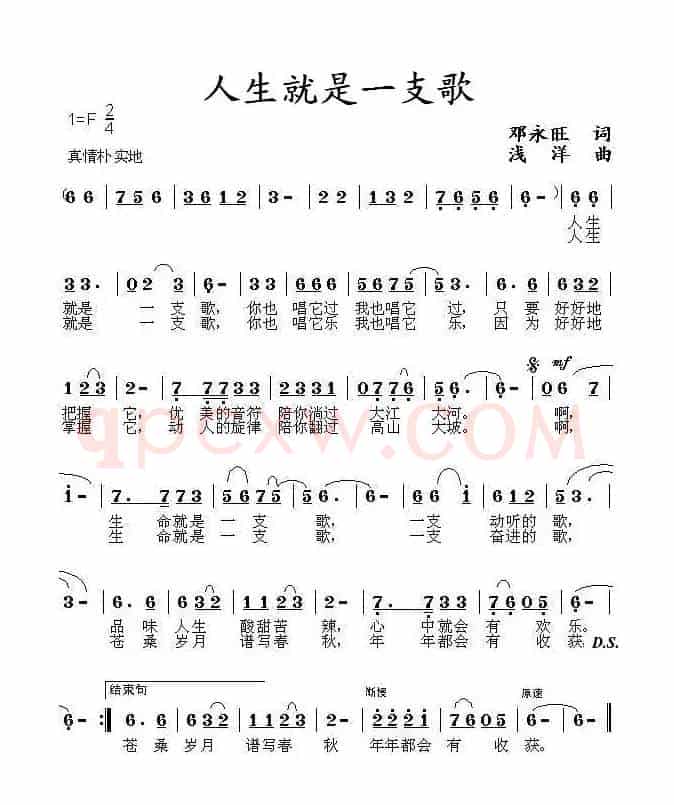 人生就是一支歌
1=F 2/4
邓永旺 词
真情朴实地
浅洋 曲
(6 6 | 7 5 6 | 3 6 1 2 | 3· 2 | 3 - | 2 2 | 1 3 2 | 7 6 5 6 | 6 - ) | 6 6 |
人生
人生
3 3· | 0 2 3 | 6 - | 3 3 | 6 6 6 | 5 6 7 5 | 5 3· | 6· 6 | 6 3 2 |
就是 一支 歌, 你也 唱它过 我也唱它 过, 只 要 好好地
就是 一支 歌, 你也 唱它乐 我也唱它 乐, 因 为 好好地
mf
1 2 3 | 2 - | 7 7 7 3 3 | 2 3 3 1 | 0 7 7 6 | 5 6· | 6 - | 0 6 7 |
把握 它, 优 美的音符 陪你淌过 大江 大河。 啊,
掌握 它, 动 人的旋律 陪你翻过 高山 大坡。 啊,
qpcxw.COM
i - | 7· 7 7 3 | 5 6 7 5 | 5 6· | 6 - | 6 6 i | 6 1 2 | 3 5· |
生 命就是 一 支 歌, 一支 动听的 歌,
生 命就是 一 支 歌, 一支 奋进的 歌,
3 - | 6· 6 | 6 3 2 | 1 1 2 3 | 2 - | 7· 7 3 | 7 6 0 5 | 6 - |
品 味 人生 酸甜苦 辣, 心 中就会 有 欢 乐。
苍 桑 岁月 谱写春 秋, 年 年都会 有 收 获 D.S.
结束句
渐慢
原速
6 - :‖ 6· 6 | 6 3 2 | 1 1 2 3 | 2 - | 2 2 2 1 | 7 6 0 5 | 6 - | 6 - ‖
苍 桑 岁月 谱写春 秋 年年都会 有 收获。